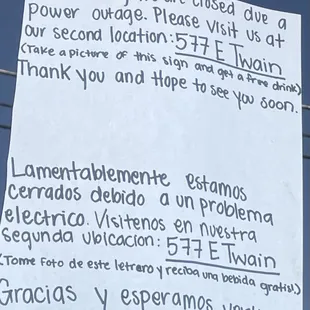 closed due a
power outage. Please Visit us at
our second location: 577 E Twain
(Take a picture of this sign and get a free drink)
Thank you and Hope to see you soon.
Lamentablemente estamos
cerrados debido a un problema
electrico. Visitenos en nuestra
segunda ubicacion: 577 E Twain
(Tome foto de este letrero y reciba una bebida gratis!)
Gracias y esperamos